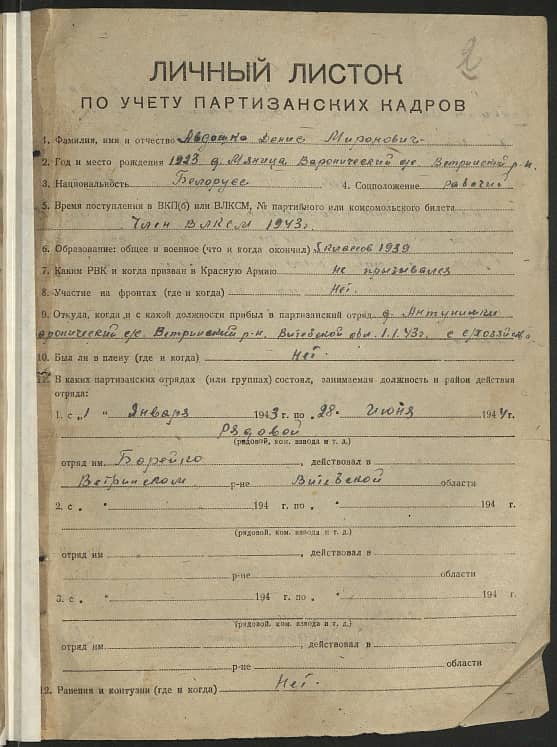 2
ЛИЧНЫЙ ЛИСТОК
ПО УЧЕТУ ПАРТИЗАНСКИХ КАДРОВ
1. Фамилия, имя и отчество Авдошко Денис Миронович
2. Год и место рождения 1923 д. Мяница Воронический с/с Ветринский р-н.
3. Национальность Белорус 4. Соцположение рабочий
5. Время поступления в ВКП(б) или ВЛКСМ, № партийного или комсомольского билета
Член ВЛКСМ 1943 г.
6. Образование: общее и военное (что и когда окончил) 5 классов 1939
7. Каким РВК и когда призван в Красную Армию не призывался
8. Участие на фронтах (где и когда) Нет.
9. Откуда, когда и с какой должности прибыл в партизанский отряд д. Антунишки
Воронический с/с. Ветринский р-н. Витебской обл. 1.1.43г. с с/хозяйства
10. Был ли в плену (где и когда) Нет.
11. В каких партизанских отрядах (или группах) состоял, занимаемая должность и район действия
отряда:
1. с „1 " Января 1943 г. по „28" Июня 1944 г.
Рядовой
(рядовой, ком. взвода и т. д.)
отряд им. Борейко, действовал в
Ветринском р-не Витебской области
2. с „ " 194 г. по „ " 194 г.
(рядовой, ком. взвода и т. д.)
отряд им , действовал в
р-не области
3. с „ " 194 г. по „ " 194 г.
(рядовой, ком. взвода и т. д.)
отряд им , действовал в
р-не области
12. Ранения и контузии (где и когда) Нет.